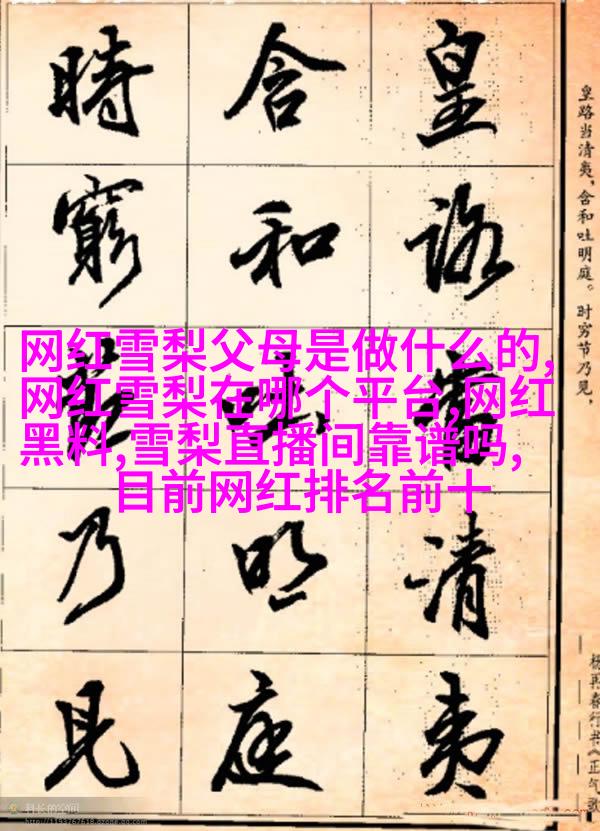 皇路清夷
含和明庭
時窮乃見
皇路当清夷,含和吐明庭。时穷节乃见,
杨再春行书《正气歌
网红雪梨父母是做什么的,
网红雪梨在哪个平台,网红
黑料,雪梨直播间靠谱吗,
目前网红排名前十
科长的空间